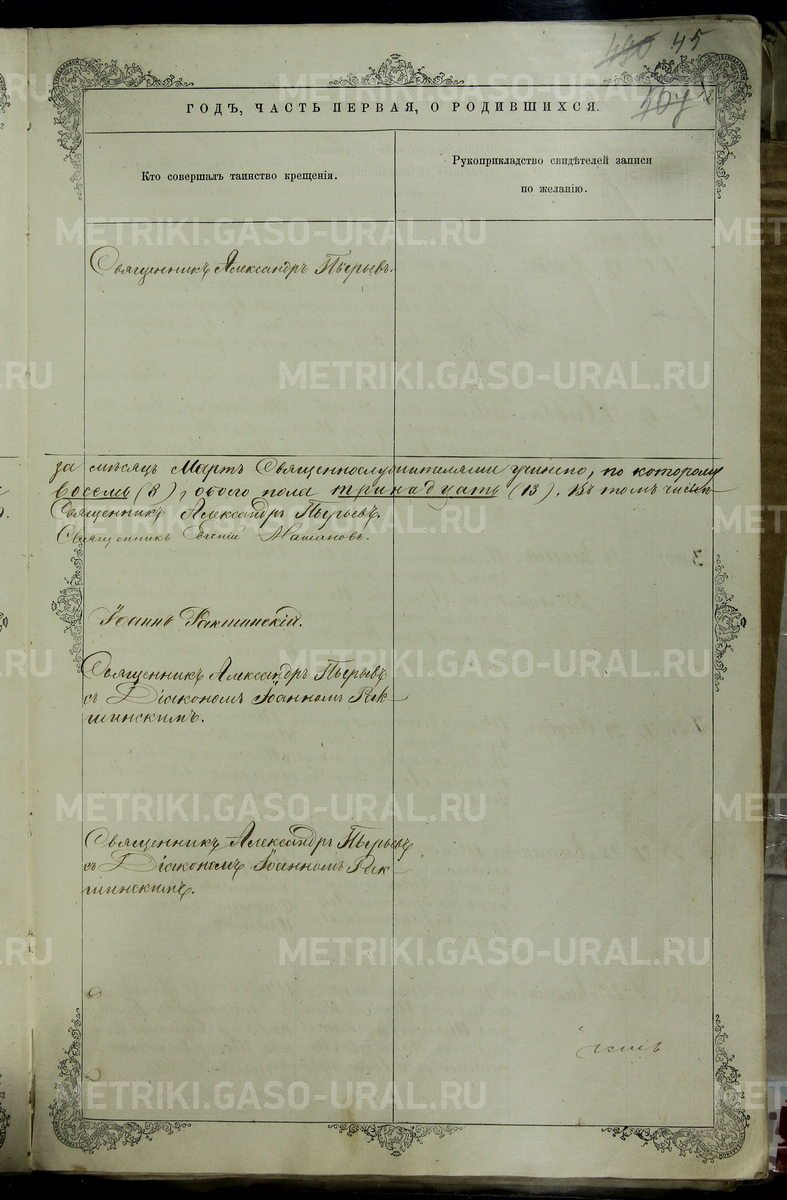 480 45
507
ГОДЪ, ЧАСТЬ ПЕРВАЯ, О РОДИВШИХСЯ.
Кто совершалъ таинство крещенія.
Рукоприкладство свидѣтелей записи
по желанію.
Священникъ Александръ
за мѣсяцъ Мартъ Священнослужителями учинено, по которому
восемь (8), обоего пола тринадцать (13). Въ томъ числѣ
Священникъ Александръ
Священникъ Евгеній
Іоаннъ Ракшинскій.
Священникъ Александръ
съ Діакономъ Іоанномъ Рак-
шинскимъ.
Священникъ Александръ
съ Діакономъ Іоанномъ Рак-
шинскимъ.
METRIKI.GASO-URAL.RU